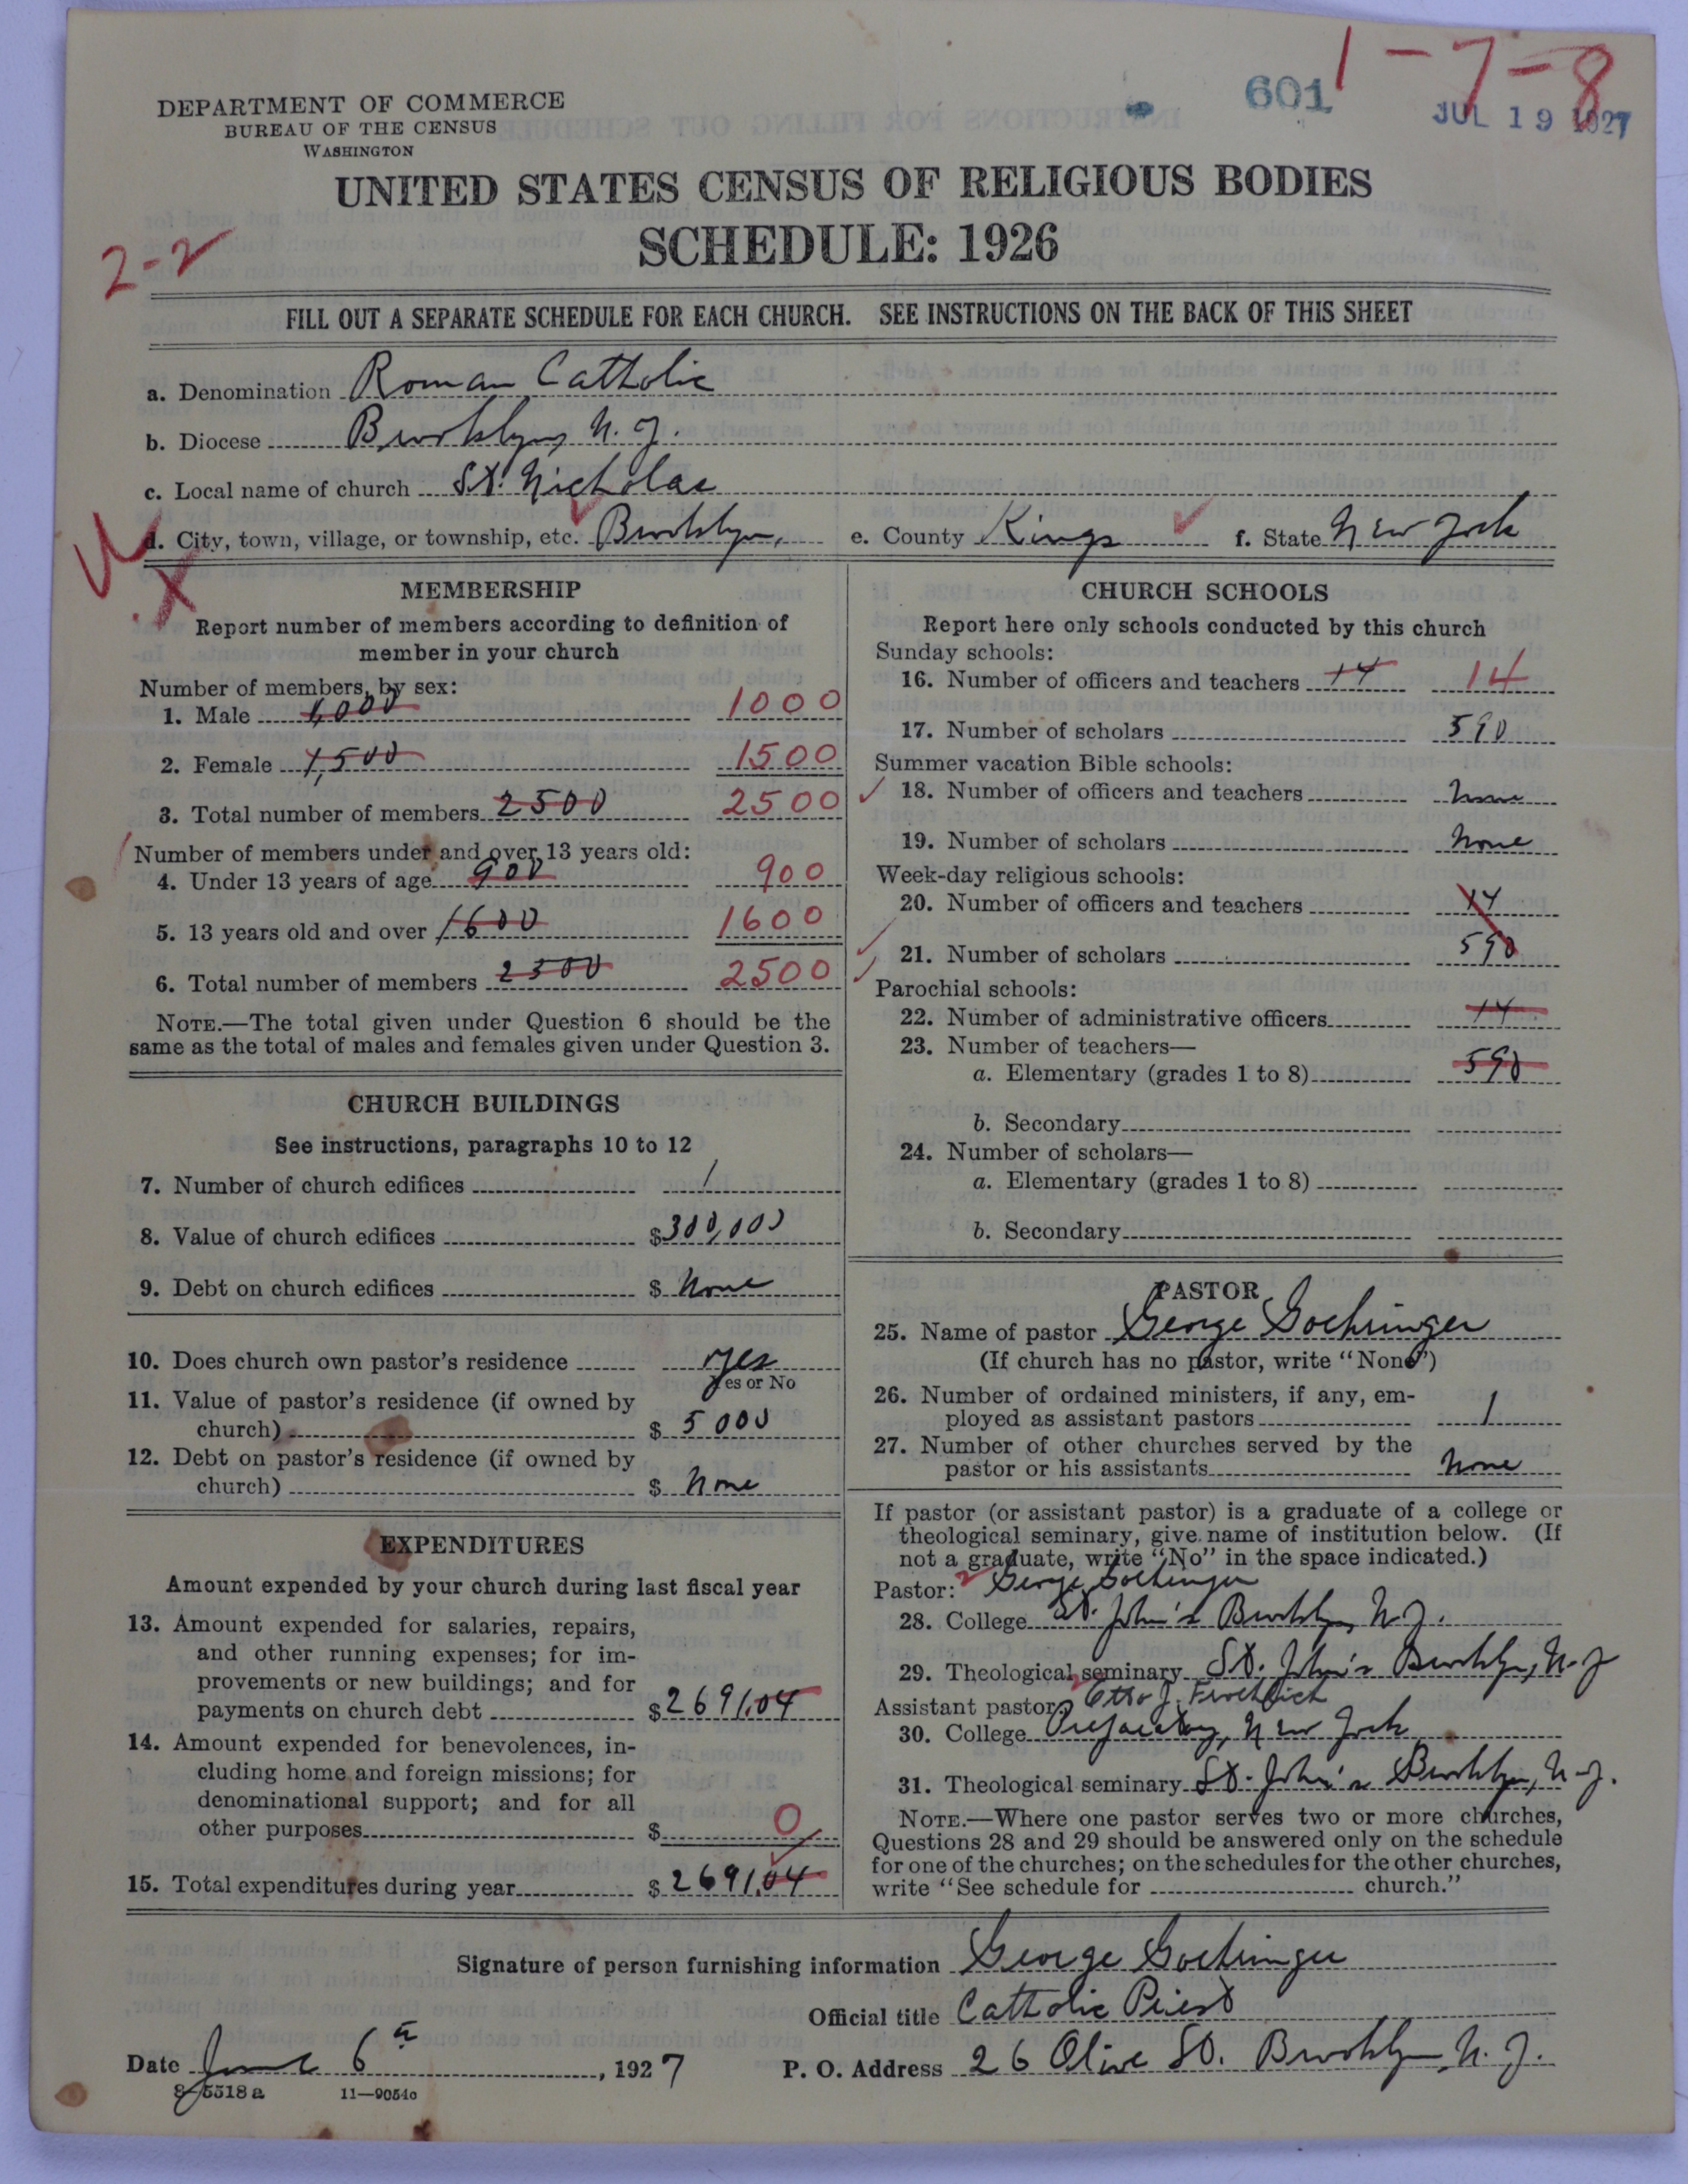 1-7-8
601
JUL 19 1927
DEPARTMENT OF COMMERCE
BUREAU OF THE CENSUS
WASHINGTON
UNITED STATES CENSUS OF RELIGIOUS BODIES
SCHEDULE: 1926
2-2
FILL OUT A SEPARATE SCHEDULE FOR EACH CHURCH. SEE INSTRUCTIONS ON THE BACK OF THIS SHEET
a. Denomination Roman Catholic
b. Diocese Brooklyn, N.Y.
c. Local name of church St. Nicholas
d. City, town, village, or township, etc. Brooklyn, e. County Kings f. State New York
MEMBERSHIP
Report number of members according to definition of
member in your church
Number of members, by sex:
1. Male 1,000 1000
2. Female 1,500 1500
3. Total number of members 2500 2500
Number of members under and over 13 years old:
4. Under 13 years of age 900 900
5. 13 years old and over 1600 1600
6. Total number of members 2500 2500
NOTE.—The total given under Question 6 should be the
same as the total of males and females given under Question 3.
CHURCH BUILDINGS
See instructions, paragraphs 10 to 12
7. Number of church edifices 1
8. Value of church edifices $300,000
9. Debt on church edifices $ None
10. Does church own pastor's residence yes
Yes or No
11. Value of pastor's residence (if owned by
church) $ 5000
12. Debt on pastor's residence (if owned by
church) $ None
EXPENDITURES
Amount expended by your church during last fiscal year
13. Amount expended for salaries, repairs,
and other running expenses; for im-
provements or new buildings; and for
payments on church debt $2691.04
14. Amount expended for benevolences, in-
cluding home and foreign missions; for
denominational support; and for all
other purposes $ 0
15. Total expenditures during year $ 2691.04
CHURCH SCHOOLS
Report here only schools conducted by this church
Sunday schools:
16. Number of officers and teachers 14 14
17. Number of scholars 590
Summer vacation Bible schools:
18. Number of officers and teachers None
19. Number of scholars None
Week-day religious schools:
20. Number of officers and teachers 14
21. Number of scholars 590
Parochial schools:
22. Number of administrative officers 14
23. Number of teachers—
a. Elementary (grades 1 to 8) 590
b. Secondary
24. Number of scholars—
a. Elementary (grades 1 to 8)
b. Secondary
PASTOR
25. Name of pastor George Goehringer
(If church has no pastor, write "None")
26. Number of ordained ministers, if any, em-
ployed as assistant pastors 1
27. Number of other churches served by the
pastor or his assistants None
If pastor (or assistant pastor) is a graduate of a college or
theological seminary, give name of institution below. (If
not a graduate, write "No" in the space indicated.)
Pastor: George Goehringer
28. College St. John's Brooklyn, N.Y.
29. Theological seminary St. John's Brooklyn, N.Y
Assistant pastor: Otto J. Froehlich
30. College Preparatory, New York
31. Theological seminary St. John's Brooklyn, N.Y.
NOTE.—Where one pastor serves two or more churches,
Questions 28 and 29 should be answered only on the schedule
for one of the churches; on the schedules for the other churches,
write "See schedule for church."
Signature of person furnishing information George Goehringer
Official title Catholic Priest
Date June 6th, 1927 P. O. Address 26 Olive St. Brooklyn, N.Y.
8-5518a 11-9054c